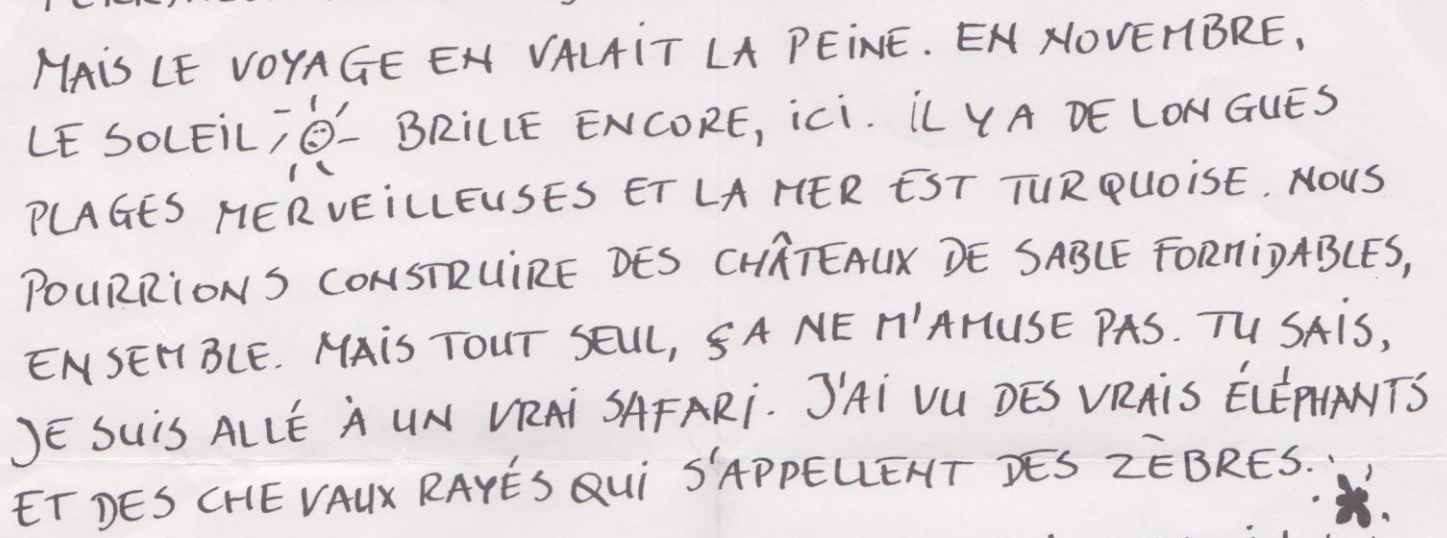 MAIS LE VOYAGE EN VALAIT LA PEINE. EN NOVEMBRE,
LE SOLEIL BRILLE ENCORE, ICI. IL Y A DE LONGUES
PLAGES MERVEILLEUSES ET LA MER EST TURQUOISE. NOUS
POURRIONS CONSTRUIRE DES CHÂTEAUX DE SABLE FORMIDABLES,
ENSEMBLE. MAIS TOUT SEUL, ÇA NE M'AMUSE PAS. TU SAIS,
JE SUIS ALLÉ À UN VRAI SAFARI. J'AI VU DES VRAIS ÉLÉPHANTS
ET DES CHEVAUX RAYÉS QUI S'APPELLENT DES ZÈBRES.